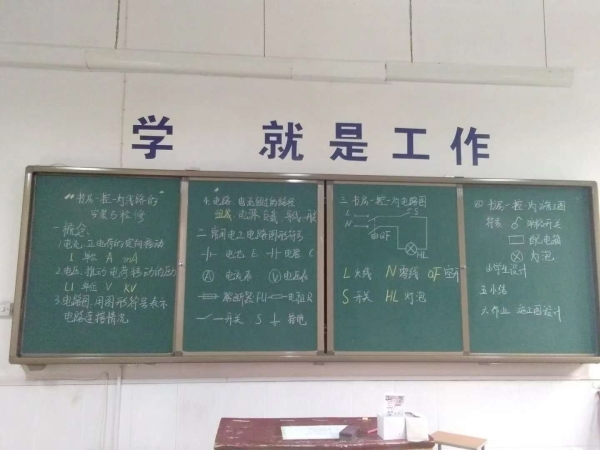 学 就是工作
"书房一控一灯线路的
安装与检修"
一.概念
1.电流.正电荷的定向移动
I 单位 A mA
2.电压.推动电荷移动的
U 单位 V KV
3.电路图.用图形符号表示
电路连接情况
4.电路.电流流过的路径
组成.电源 负载 导线 开关
二.常用电工电路图形符号
电池.E 电容 C
A 电流表 V 电压表
熔断器FU 电阻R
开关.S 接地
三.书房一控一灯电路图
L
N
S
QF
HL
L 火线 N 零线 QF 空开
S 开关 HL 灯泡
四.书房一控一灯施工图
符号 开关
配电箱
灯泡
学生设计
五.小结
六.作业 施工图设计